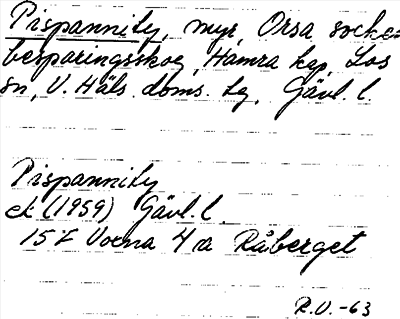 Pispannity, myr, Orsa socken-
besparingsskog, Hamra kap, Los
sn, V. Häls. doms. tg. Gävl. l.
Pispannity
ek (1959) Gävl. l.
15 F Voxna 4 a Råberget
R.U. -63